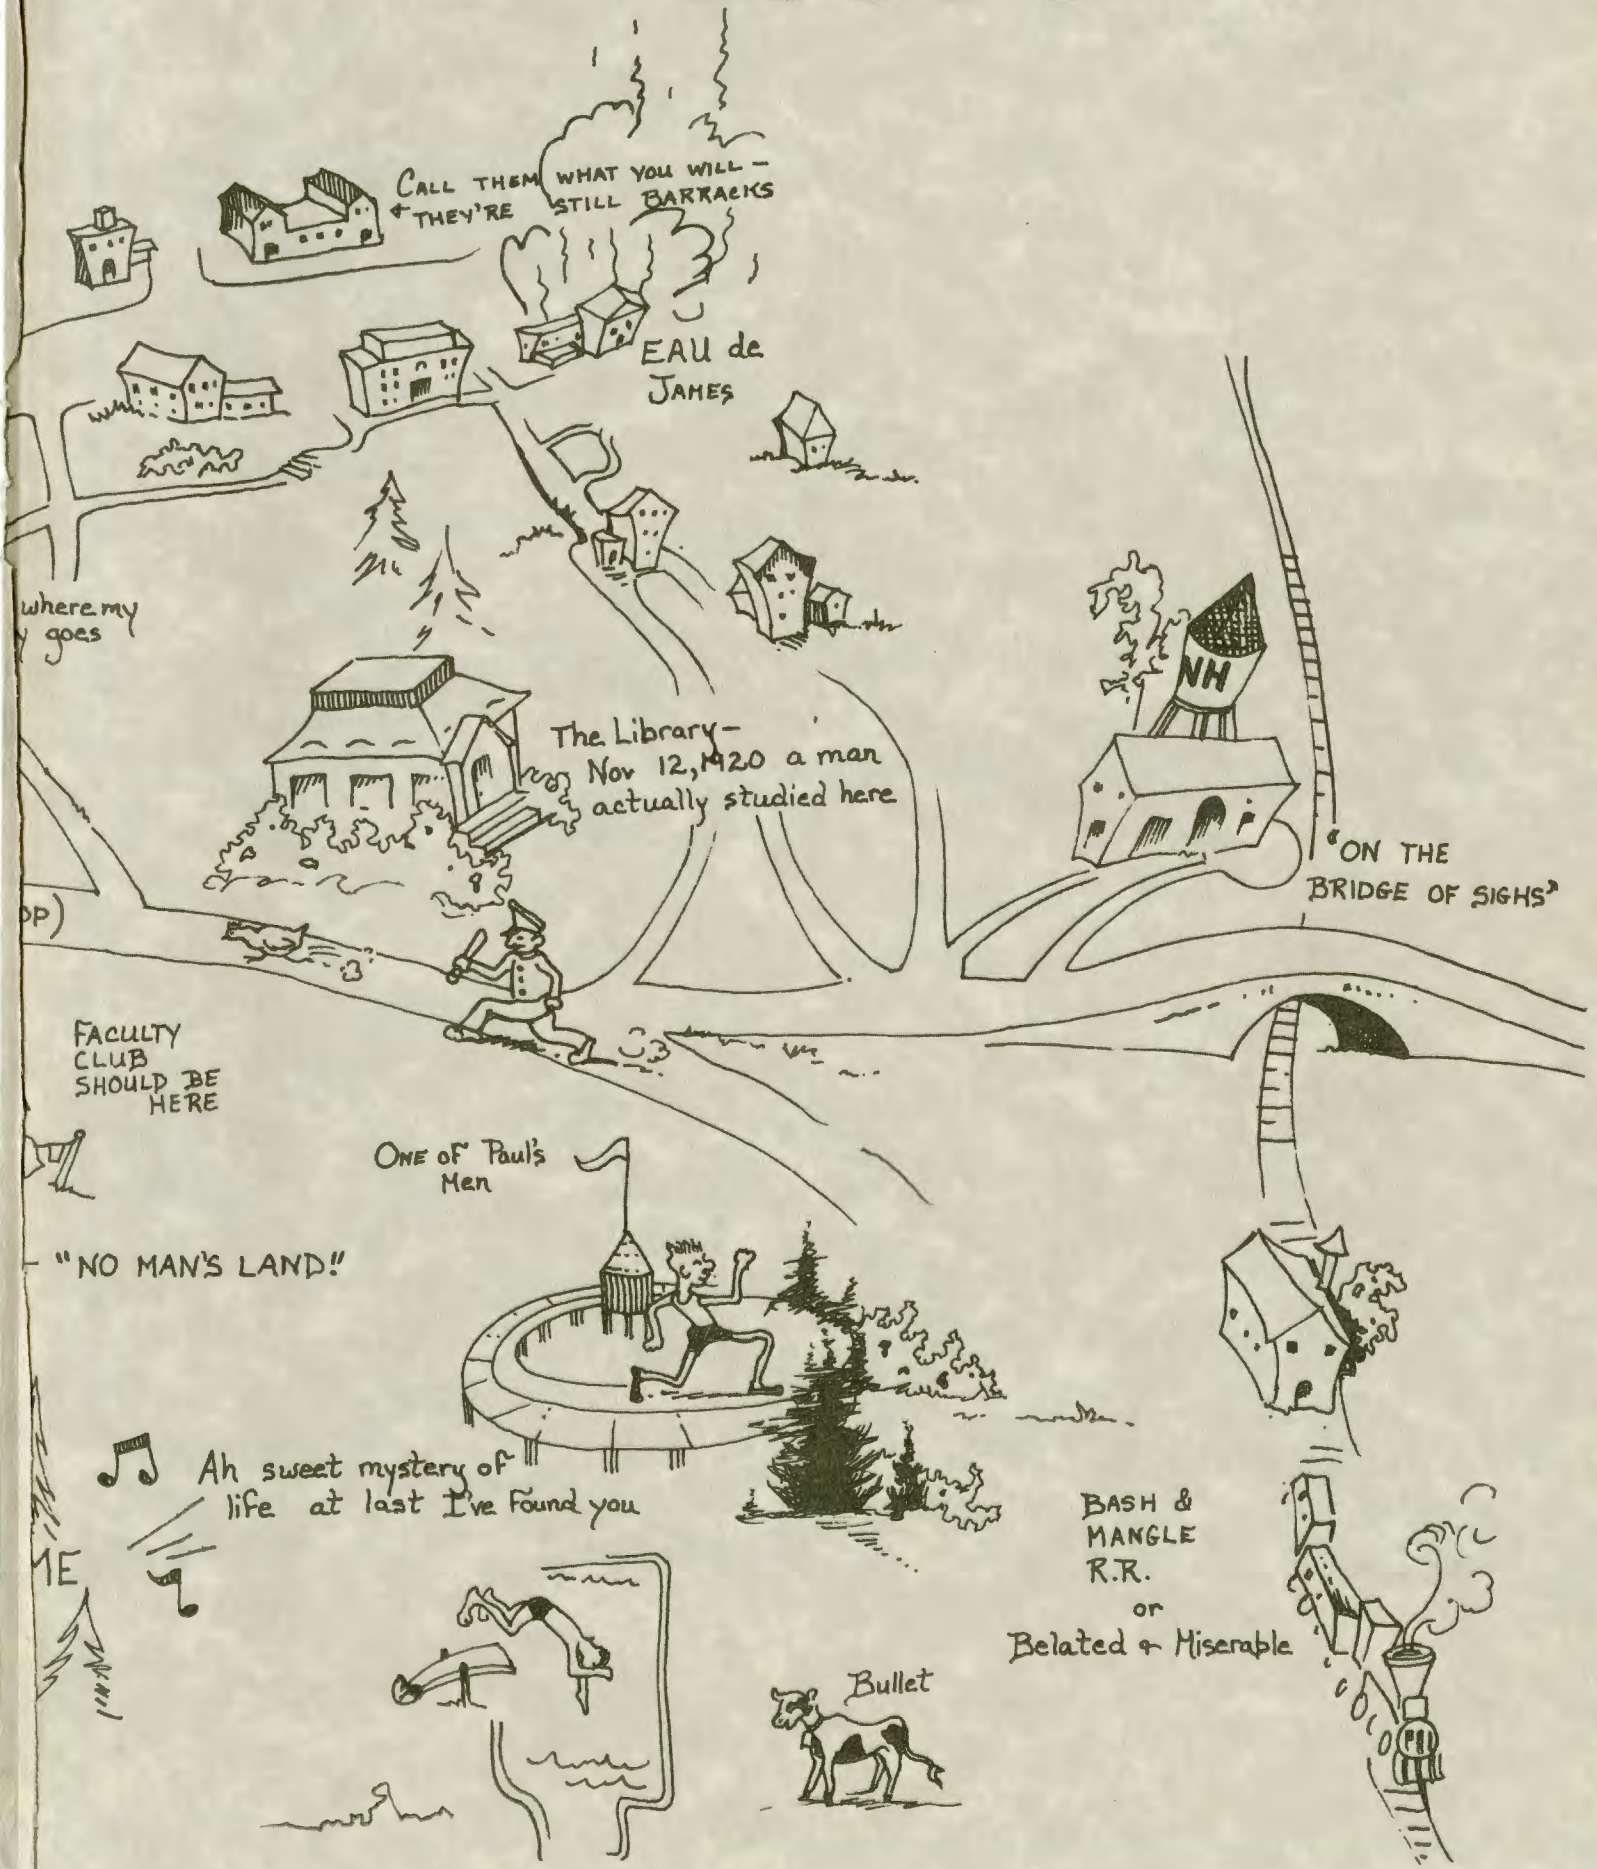 CALL THEM WHAT YOU WILL –
THEY'RE STILL BARRACKS
EAU de
JAMES
where my
goes
NH
The Library –
Nov 12, 1920 a man
actually studied here
"ON THE
BRIDGE OF SIGHS"
OP)
FACULTY
CLUB
SHOULD BE
HERE
ONE OF Paul's
Men
"NO MAN'S LAND!"
Ah sweet mystery of
life at last I've found you
ME
BASH &
MANGLE
R.R.
or
Belated & Miserable
Bullet